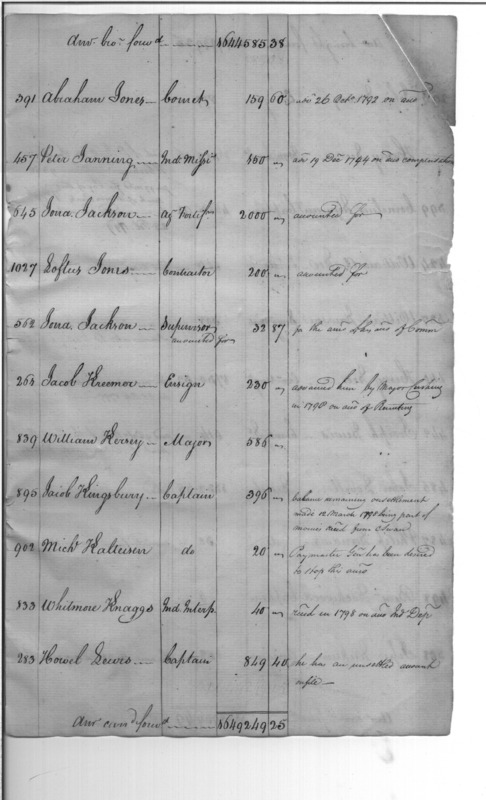 Amt. bro. forwd. 1644585 38
391 Abraham Jones Cornet 159 60 adv 26 Octr. 1792 on acct
457 Peter Janning Indn. Missy. 450 " adv 19 Decr 1794 on acct compensation
645 Jona. Jackson Agt. Fortifns 2000 " accounted for
1027 Loftus Jones Contractor 200 " accounted for
562 Jona. Jackson Supervisor 32 87 for the amt of his acct of Comn
accounted for
265 Jacob Kreemer Ensign 230 " advanced him by Major Cushing
in 1798 on acct of Recruiting
839 William Kersey Major 586 "
895 Jacob Kingsbury Captain 396 " balance remaining on settlement
made 12 March 1798 being part of
monies recd from
902 Michl. Kalteisen do 20 " Paymaster Genl has been desired
to stop the amt
833 Whitmore Knaggs Ind. Interp. 40 " recd in 1798 on acct Int Dept
283 Howel Lewis Captain 849 40 he has an unsettled account
in file
Amt carrd. forwd. 1649249 25